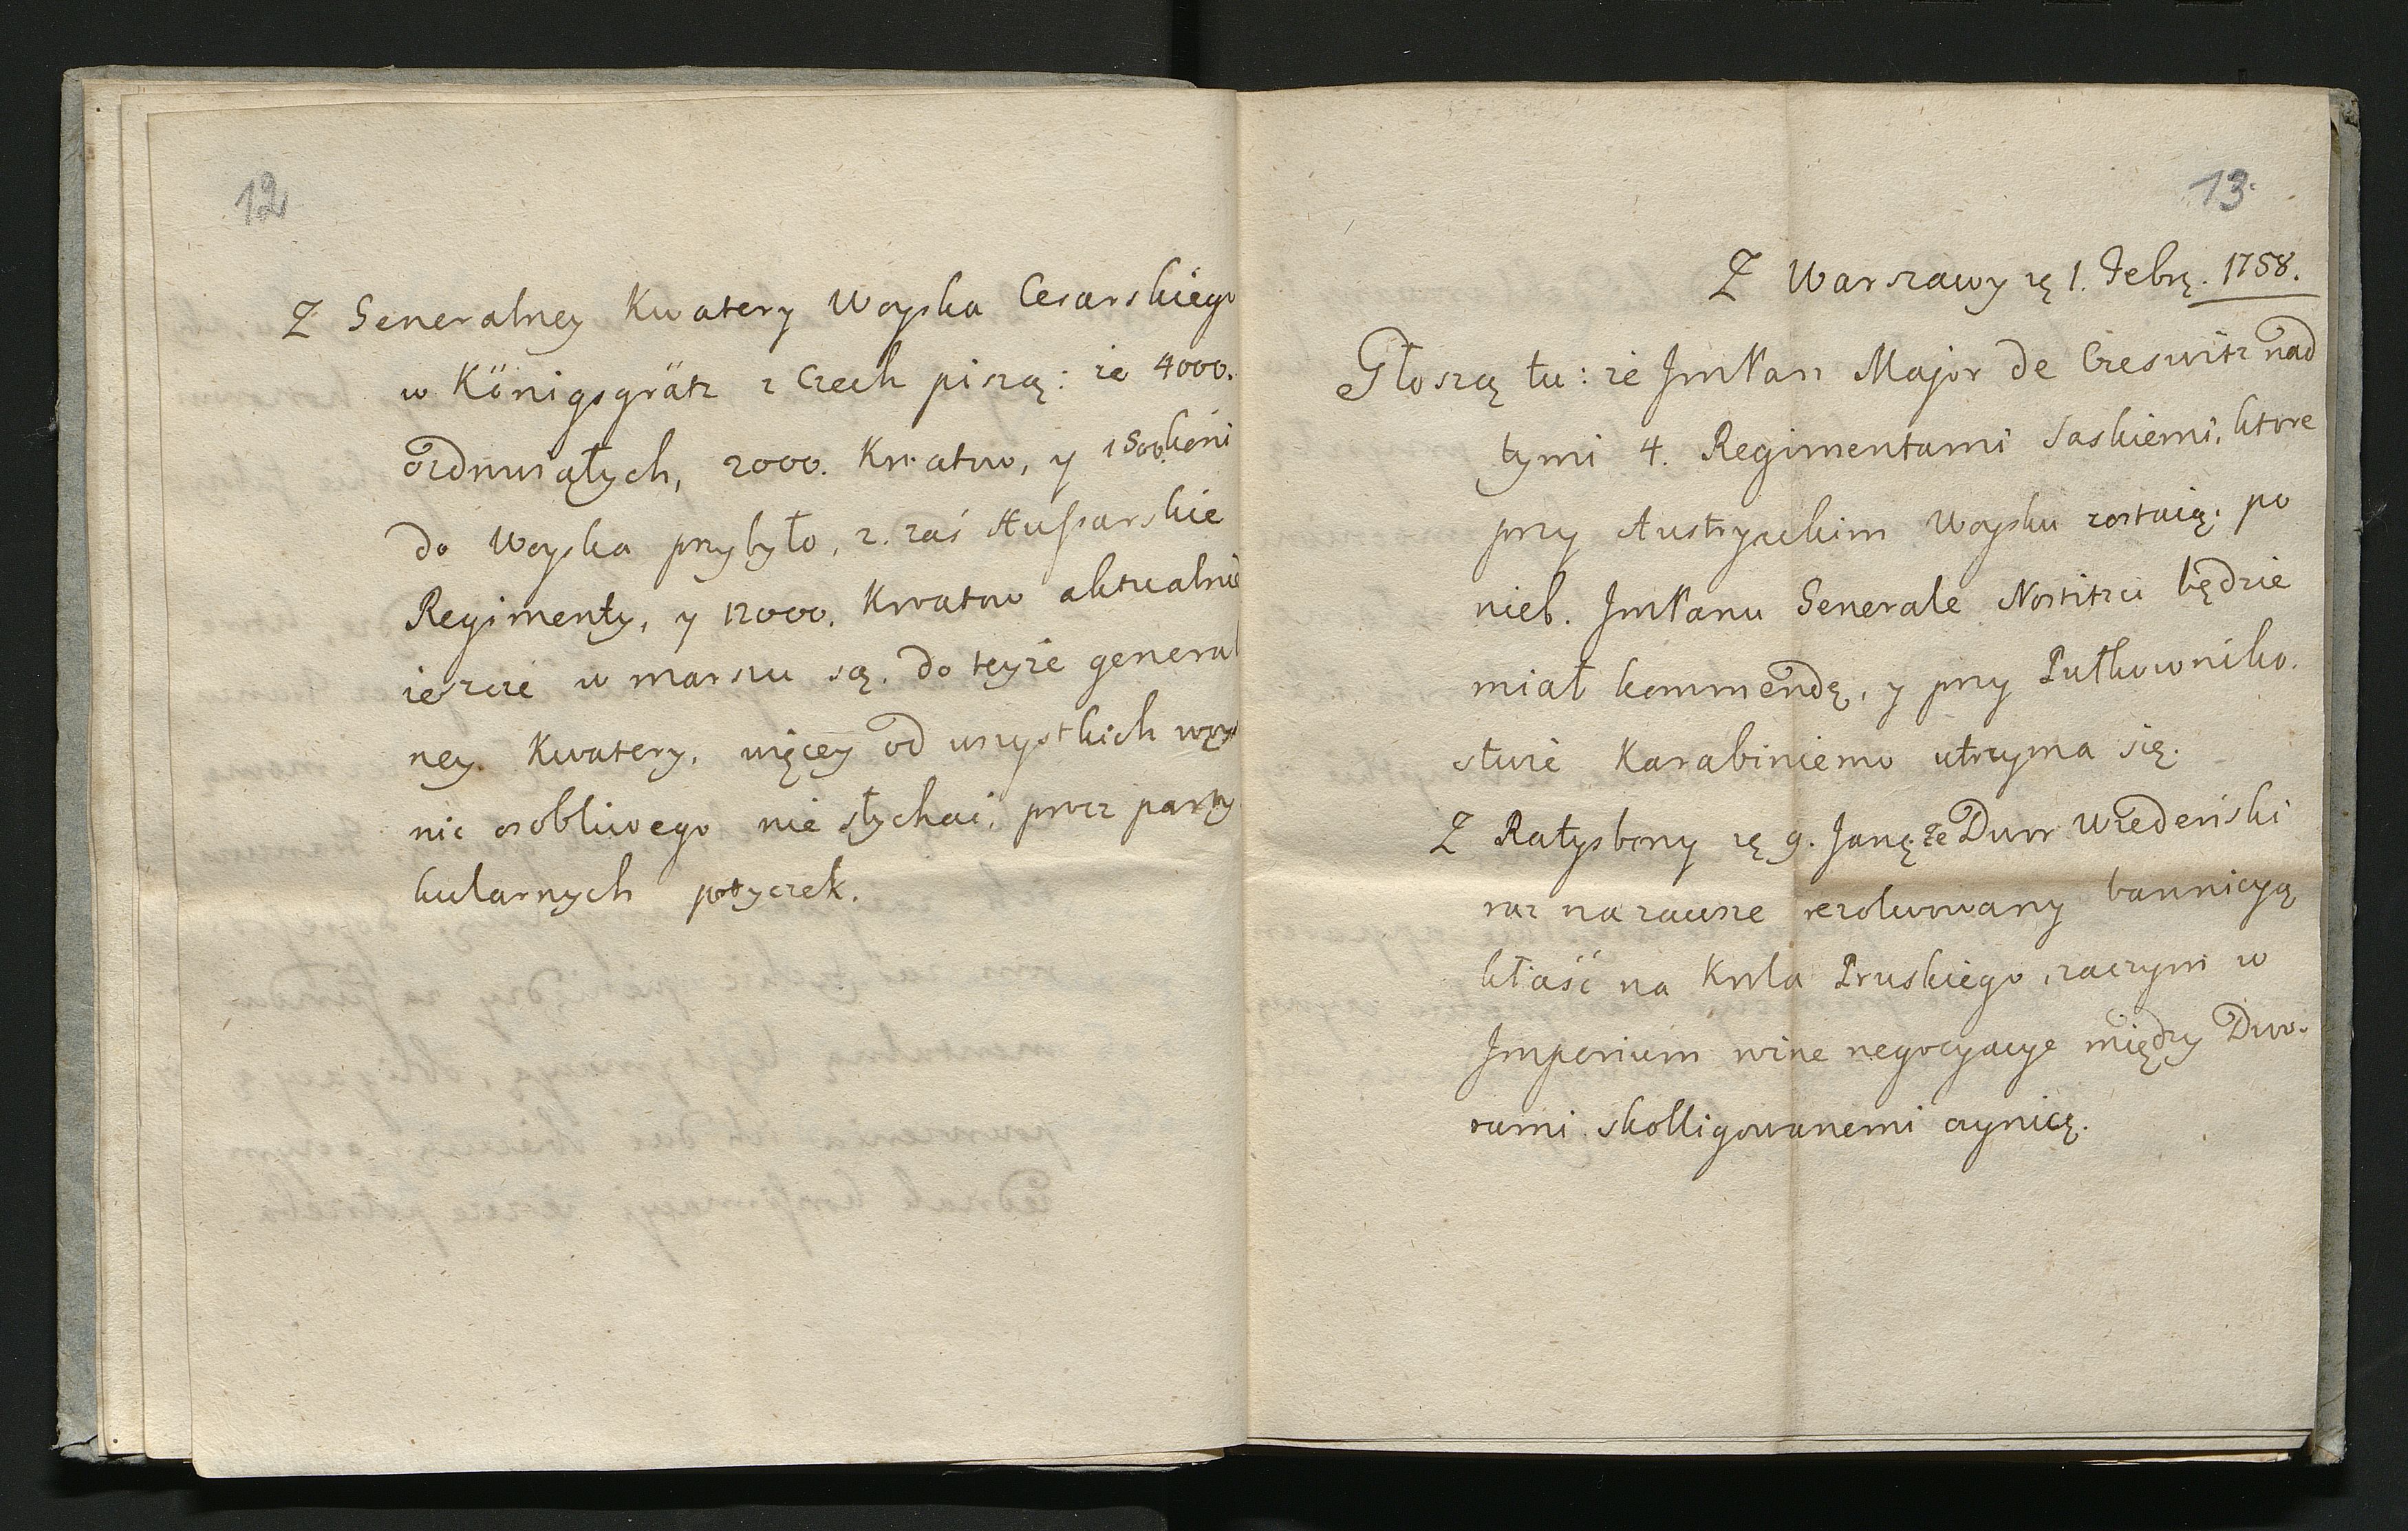 12
Z Generalney Kwatery Woyska Cesarskiego
w Königsgrätz z Czech piszą: że 4000.
ozdrowiałych, 2000. Kroatow, y 1500. koni
do Woyska przybyło, 2. zaś Hussarskie
Regimenty, y 12000. Kroatow aktualnie
ieszcze w marszu są. do teyże general
ney. Kwatery, więcey od wszystkich woysk
nic osobliwego nie słychać, procz party
kularnych potyczek.
13.
Z Warszawy zę 1. Febrę. 1758.
Głoszą tu: że JmPan Major de Czeswitz nad
tymi 4. Regimentami Saskiemi, ktore
przy Austryackim Woysku zostaią; po
nieb. JmPanu Generale Nostitzu będzie
miał kommendę, y przy Pułkowniko.
stwie Karabinierow utrzyma się.
Z Ratysbony zę 9. Janę. że Dwor Wiedeński
raz na zawsze rezolwowany bannicyą
kłaść na Krola Pruskiego, zaczym w
Imperium rożne negocyacye między Dwo.
rami skolligowanemi czynią.